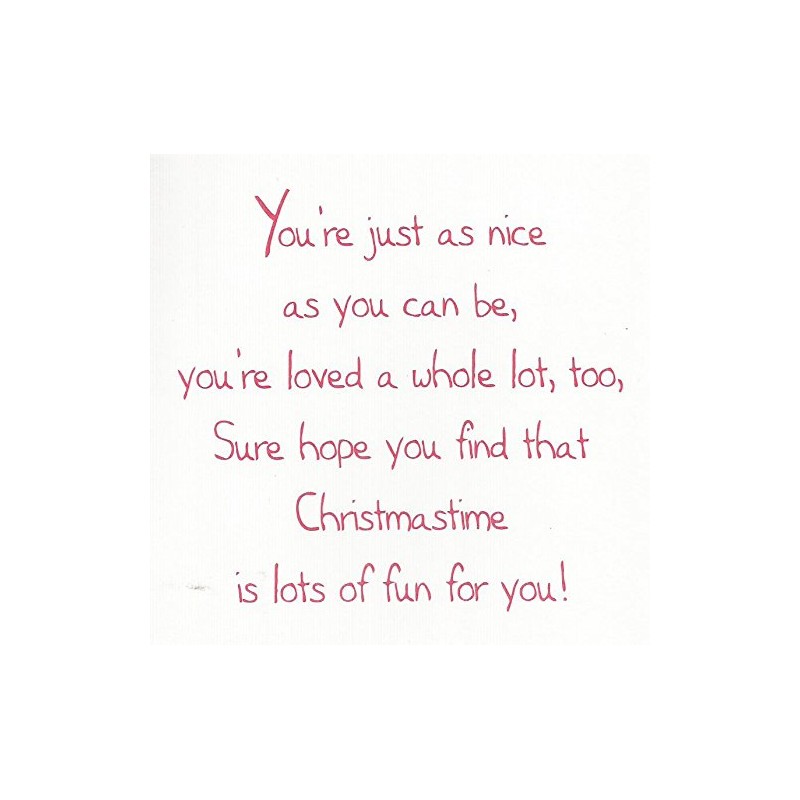 You're just as nice
as you can be,
you're loved a whole lot, too,
Sure hope you find that
Christmastime
is lots of fun for you!